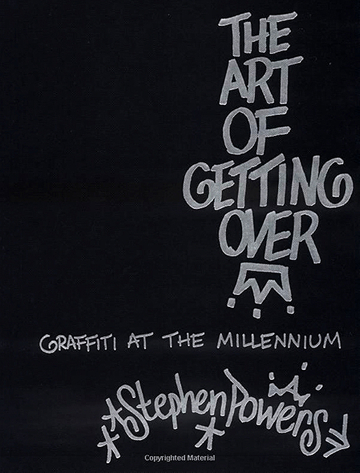 THE
ART
OF
GETTING
OVER
GRAFFITI AT THE MILLENNIUM
Stephen Powers
Copyrighted Material